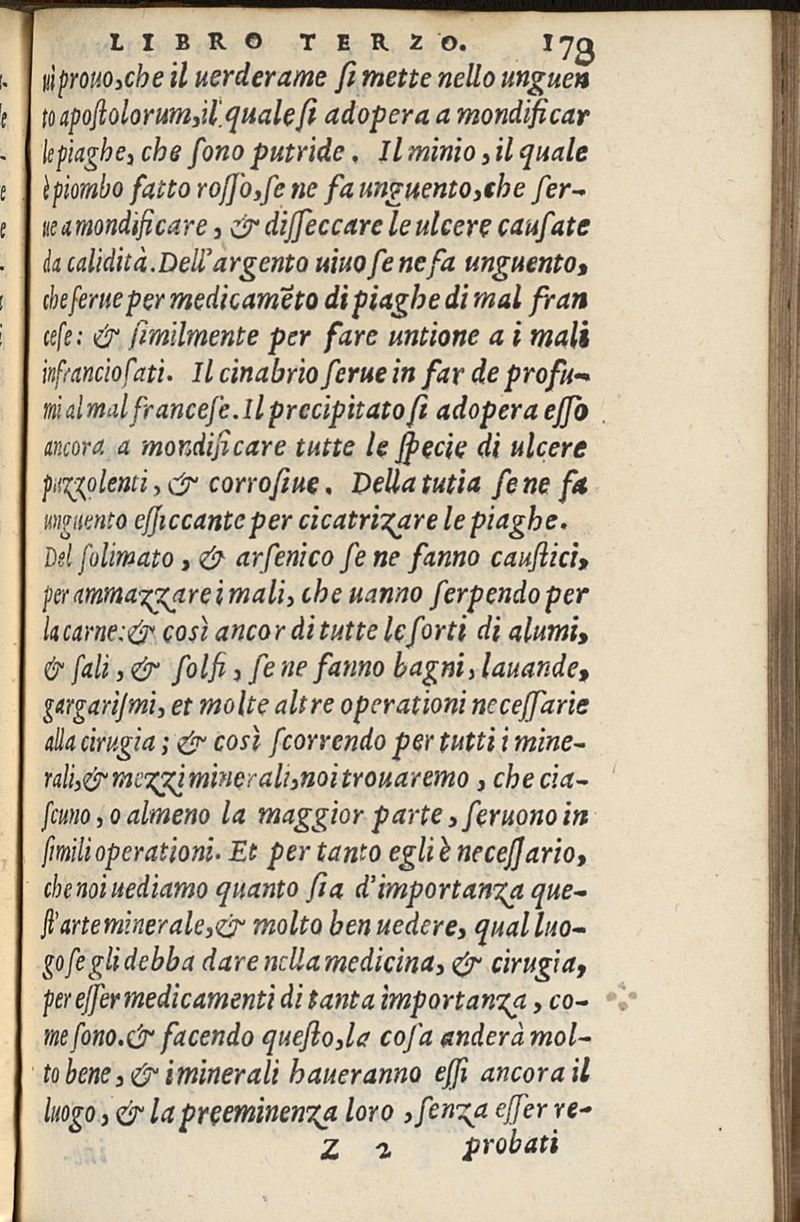 LIBRO TERZO. 178
ui prouo, che il uerderame ſi mette nello unguen
to apoſtolorum, il quale ſi adopera a mondificar
le piaghe, che ſono putride. Il minio, il quale
è piombo fatto roſſo, ſe ne fa unguento, che ſer-
ue a mondificare, & diſſeccare le ulcere cauſate
da calidità. Dell'argento uiuo ſe ne fa unguento,
che ſerue per medicamẽto di piaghe di mal fran
ceſe: & ſimilmente per fare untione a i mali
infrancioſati. Il cinabrio ſerue in far de profu-
mi al mal franceſe. Il precipitato ſi adopera eſſo
ancora a mondificare tutte le ſpecie di ulcere
puzzolenti, & corroſiue. Della tutia ſe ne fa
unguento eſſiccante per cicatrizare le piaghe.
Del ſolimato, & arſenico ſe ne fanno cauſtici,
per ammazzare i mali, che uanno ſerpendo per
la carne: & così ancor di tutte le ſorti di alumi,
& ſali, & ſolfi, ſe ne fanno bagni, lauande,
gargariſmi, et molte altre operationi neceſſarie
alla cirugia; & così ſcorrendo per tutti i mine-
rali, & mezzi minerali, noi trouaremo, che cia-
ſcuno, o almeno la maggior parte, ſeruono in
ſimili operationi. Et per tanto egli è neceſſario,
che noi uediamo quanto ſia d'importanza que-
ſt'arte minerale, & molto ben uedere, qual luo-
go ſe gli debba dare nella medicina, & cirugia,
per eſſer medicamenti di tanta importanza, co-
me ſono. & facendo queſto, la coſa anderà mol-
to bene, & i minerali haueranno eſſi ancora il
luogo, & la preeminenza loro, ſenza eſſer re-
Z 2 probati